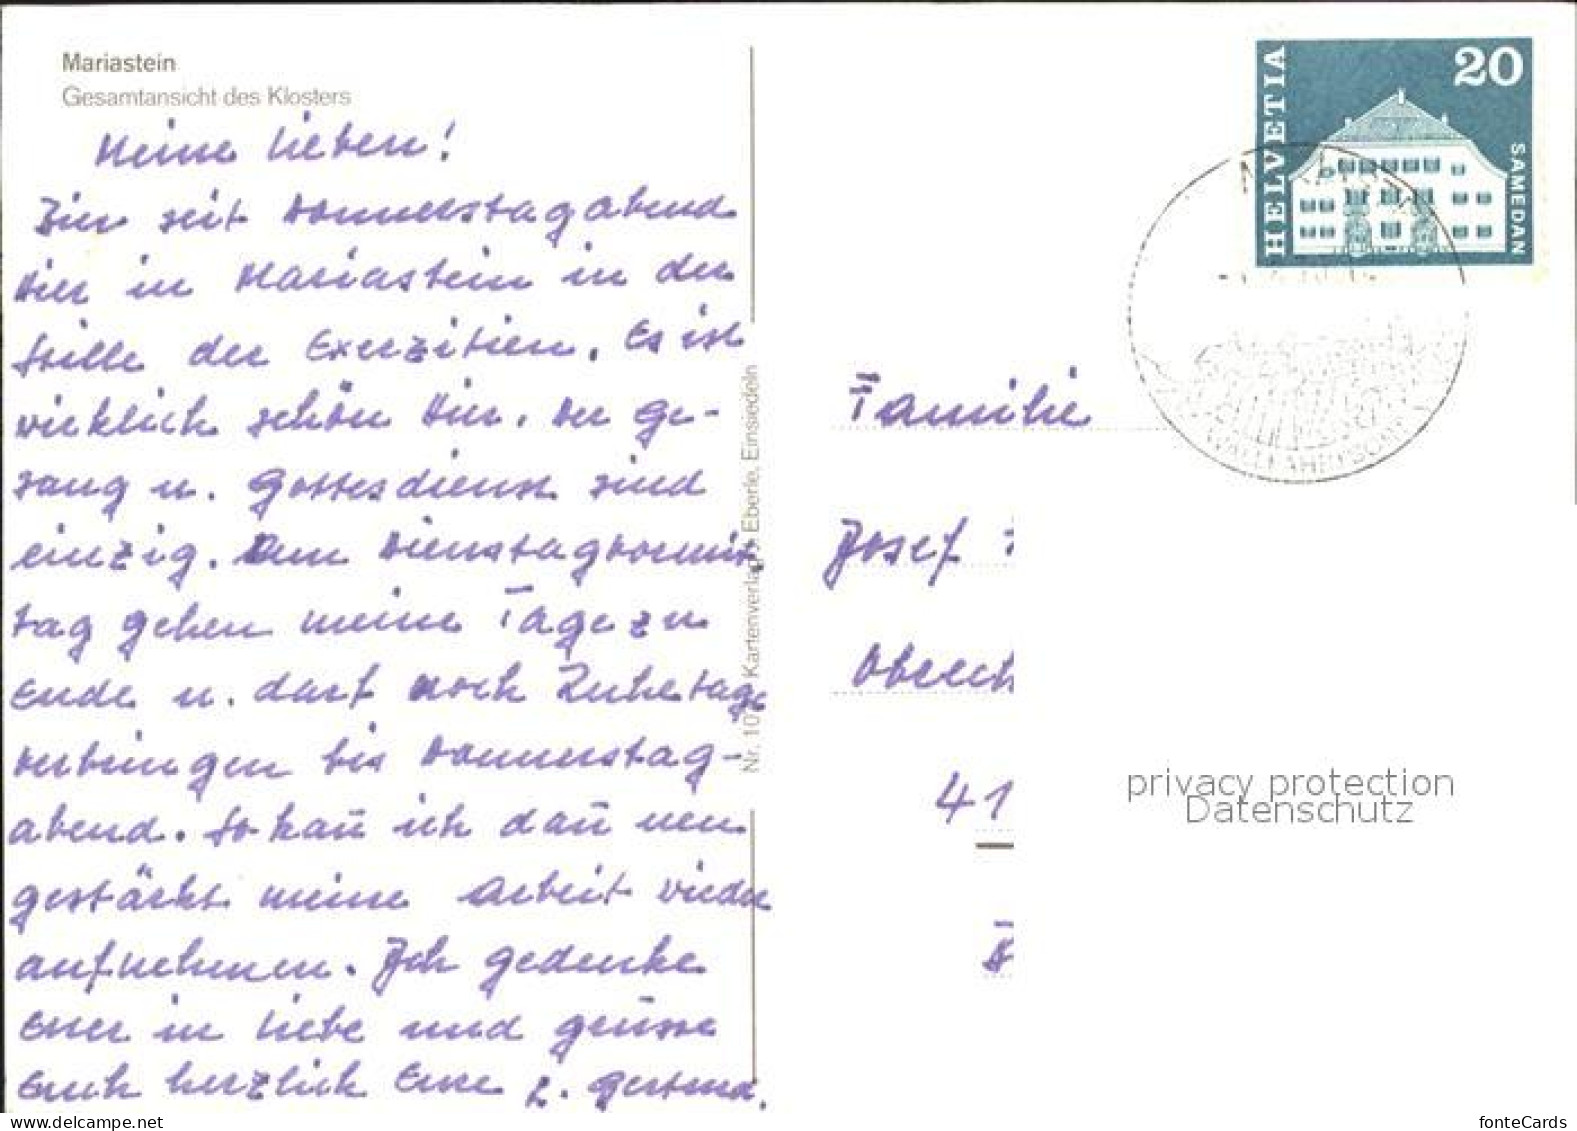 Mariastein
Gesamtansicht des Klosters
Meine Lieben!
Bin seit Donnerstagabend
hier in Mariastein in der
Stille der Exerzitien. Es ist
wirklich schön hier. Der Ge-
sang u. Gottesdienst sind
einzig. Am Dienstagvormit-
tag gehen meine Tage zu
Ende u. darf noch Ruhetage
verbringen bis Donnerstag-
abend. So kan̄ ich dan̄ neu
gestärkt meine Arbeit wieder
aufnehmen. Ich gedenke
Euer in Liebe und grüsse
Euch herzlich Eure L. Gertrud.
Nr. 107 Kartenverlag Eberle, Einsiedeln
HELVETIA
20
SAMEDAN
WALLFAHRTSORT
Familie
Josef
Obrech
41
privacy protection
Datenschutz
delcampe.net
fonteCards